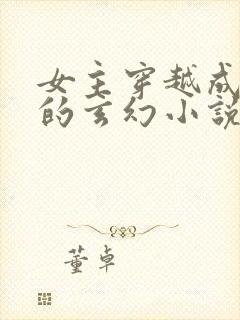 女主穿越成
的玄幻小说
董卓